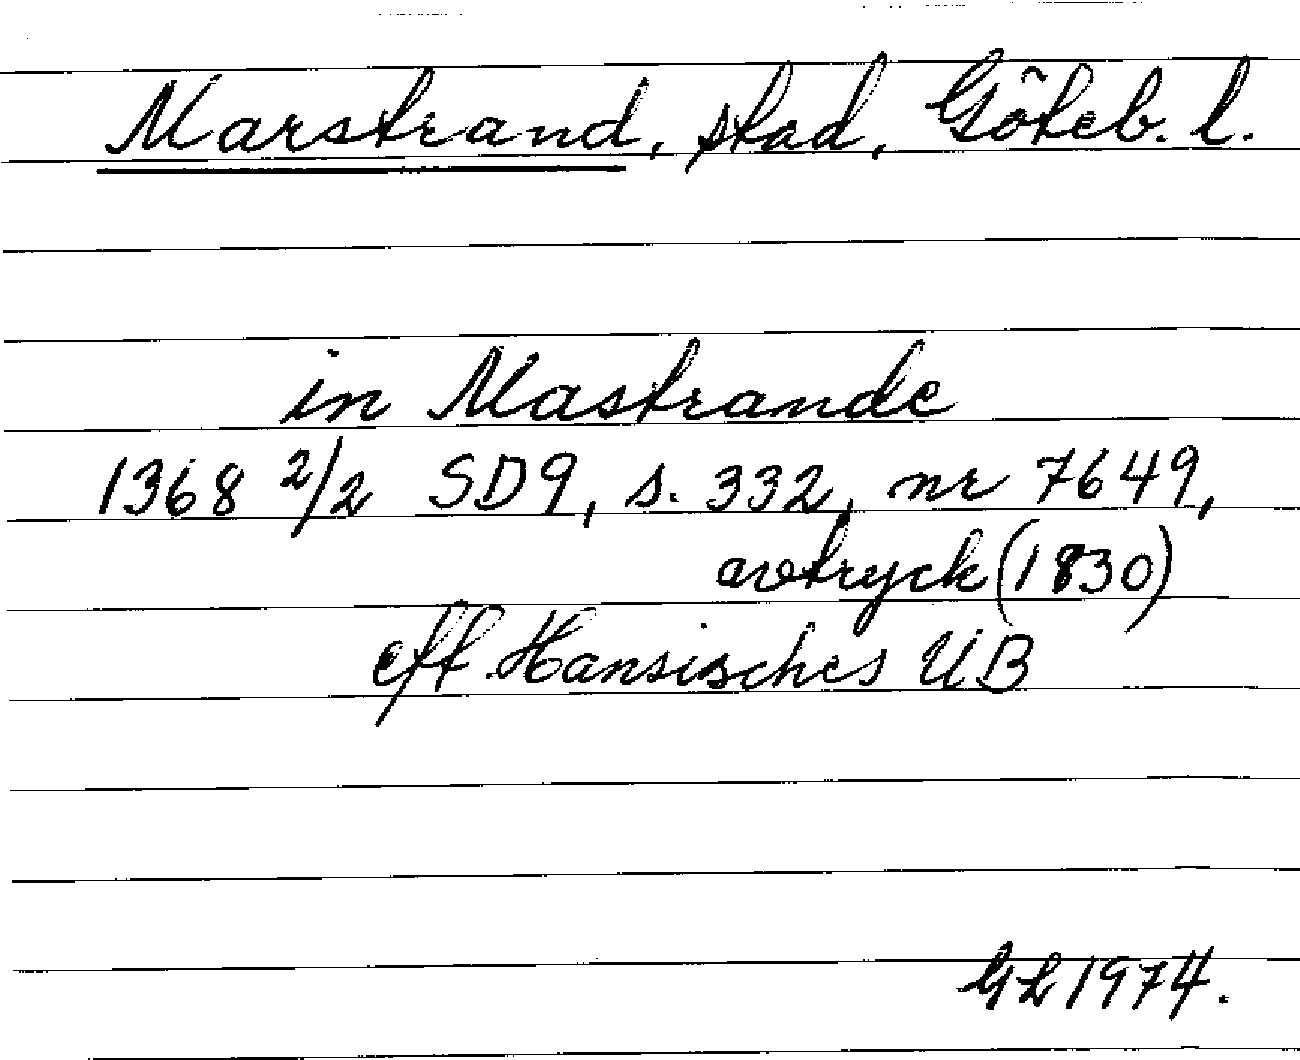 Marstrand, stad, Göteb. l.
in Mastrande
1368 2/2 SD9, s. 332, nr 7649,
avtryck (1830)
eft. Hansisches UB
GL 1974.